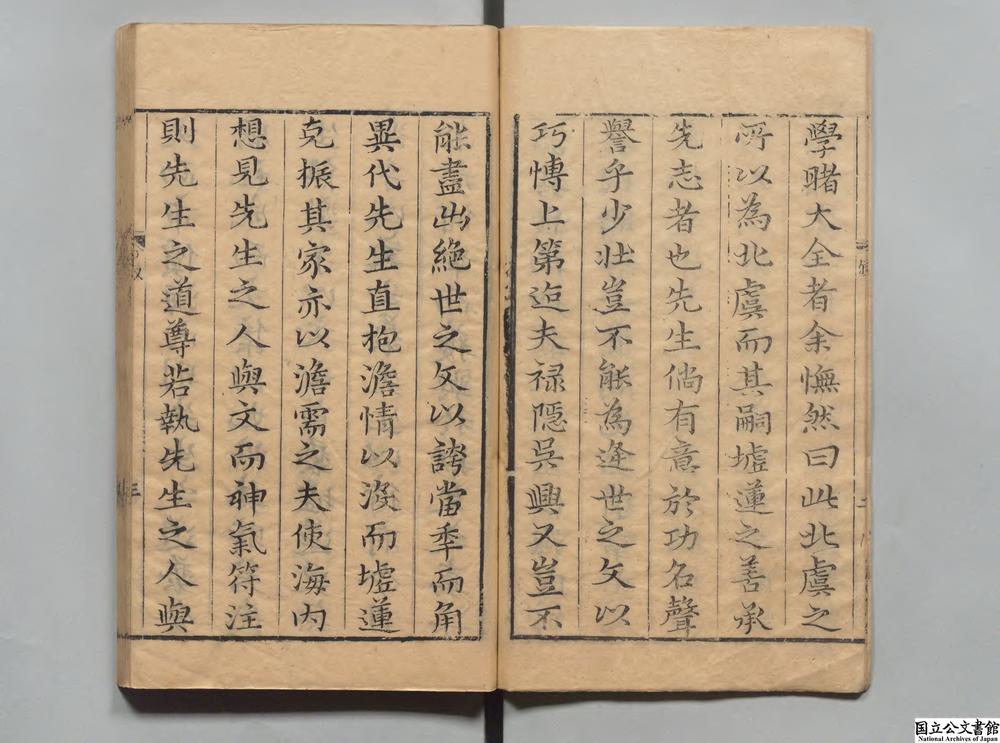 學賭大全者余憮然曰此北虞之
所以為北虞而其嗣墟蓮之善承
先志者也先生倘有意於功名聲
譽乎少壯豈不能為逢世之文以
巧慱上第迨夫祿隱吳興又豈不
能盡出絕世之文以誇當季而角
異代先生直抱澹情以沒而墟蓮
克振其家亦以澹需之夫使海內
想見先生之人與文而神氣符注
則先生之道尊若執先生之人與
三
国立公文書館
National Archives of Japan